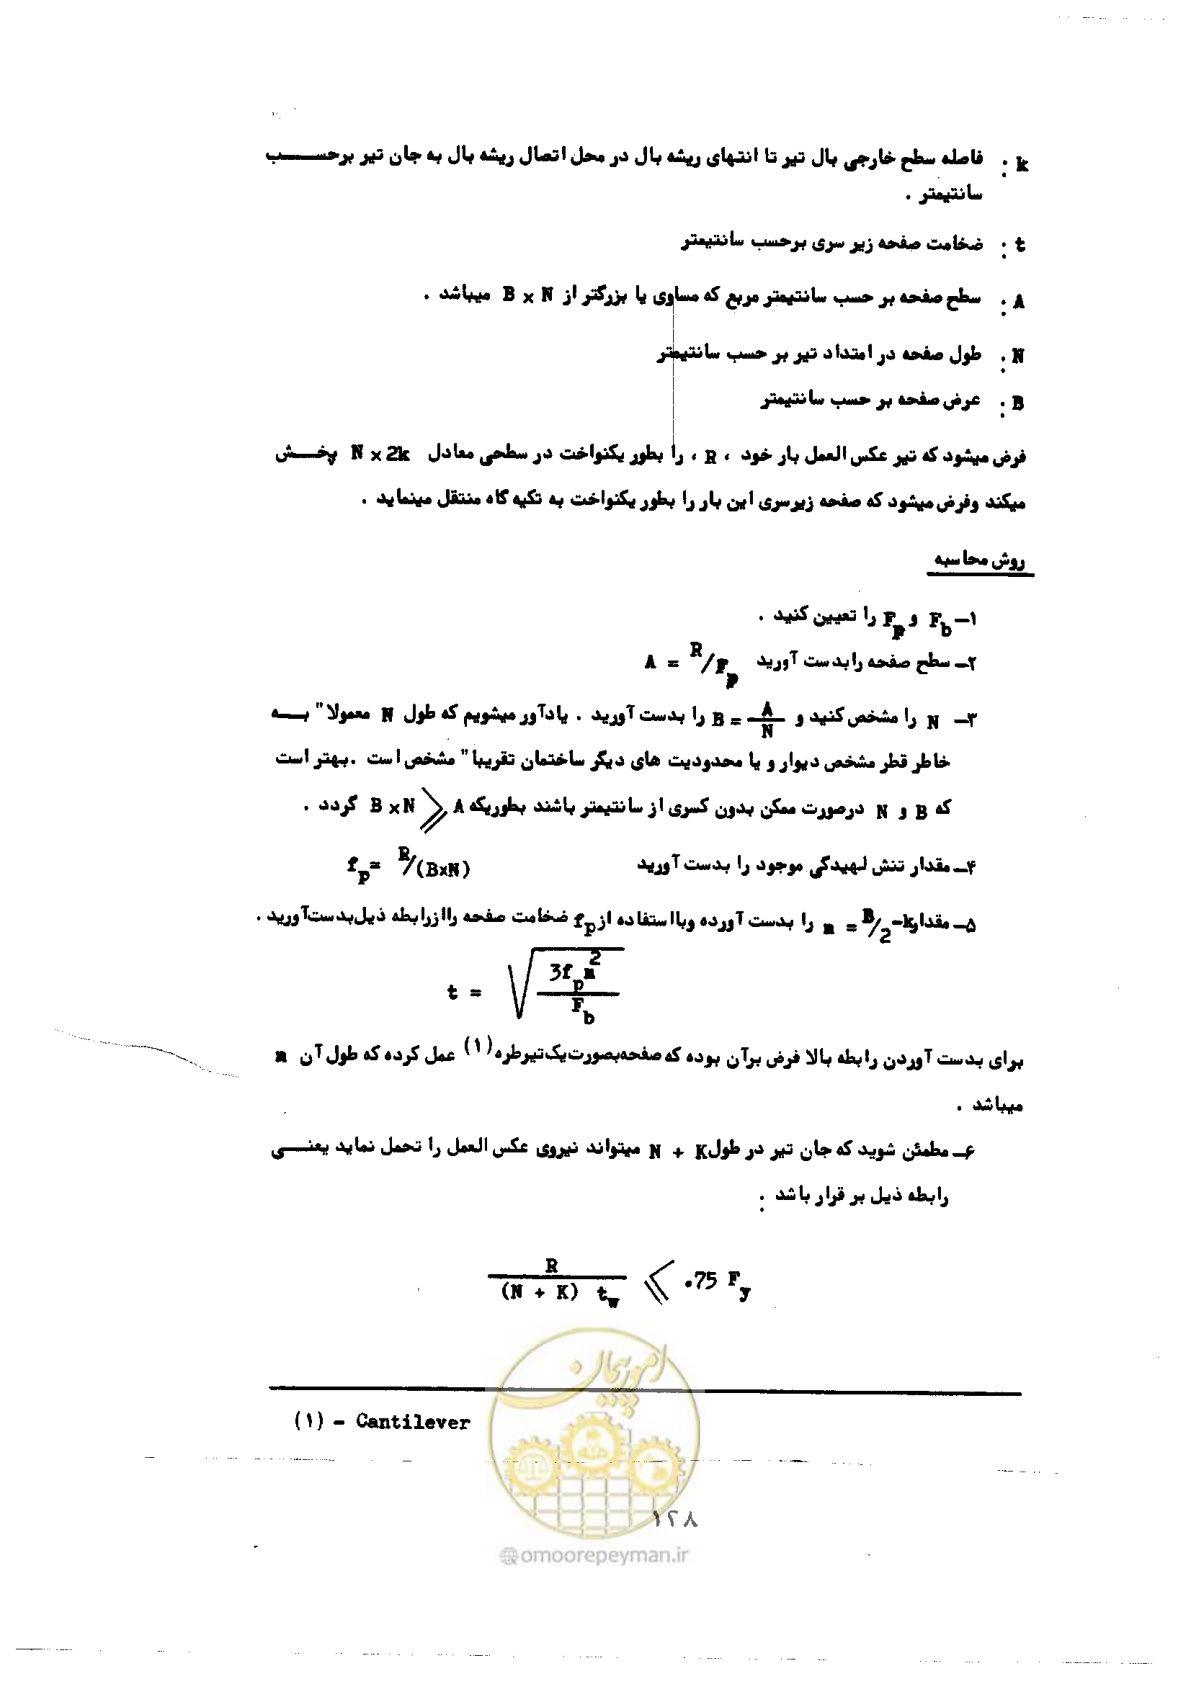 k : فاصله سطح خارجی بال تیر تا انتهای ریشه بال در محل اتصال ریشه بال به جان تیر برحسب
سانتیمتر .
t : ضخامت صفحه زیر سری برحسب سانتیمتر
A : سطح صفحه بر حسب سانتیمتر مربع که مساوی یا بزرگتر از B x N میباشد .
N : طول صفحه در امتداد تیر بر حسب سانتیمتر
B : عرض صفحه بر حسب سانتیمتر
فرض میشود که تیر عکس العمل بار خود ، R ، را بطور یکنواخت در سطحی معادل N x 2k پخش
میکند وفرض میشود که صفحه زیرسری این بار را بطور یکنواخت به تکیه گاه منتقل مینماید .
روش محاسبه
۱- F_b و F_p را تعیین کنید .
۲- سطح صفحه را بدست آورید A = R/F_p
۳- N را مشخص کنید و B = A/N را بدست آورید . یادآور میشویم که طول N معمولا" به
خاطر قطر مشخص دیوار و یا محدودیت های دیگر ساختمان تقریبا" مشخص است . بهتر است
که B و N درصورت ممکن بدون کسری از سانتیمتر باشند بطوریکه B x N ⩾ A گردد .
۴- مقدار تنش لهیدگی موجود را بدست آورید f_p = R/(BxN)
۵- مقدار m = B/2-k را بدست آورده وبا استفاده از f_p ضخامت صفحه را ازرابطه ذیل بدست آورید .
t = √(3f_p m² / F_b)
برای بدست آوردن رابطه بالا فرض برآن بوده که صفحه بصورت یک تیرطره (۱) عمل کرده که طول آن m
میباشد .
۶- مطمئن شوید که جان تیر در طول N + K میتواند نیروی عکس العمل را تحمل نماید یعنی
رابطه ذیل بر قرار باشد :
R / (N + K) t_w ⩽ .75 F_y
(۱) - Cantilever
امور پیمان
۱۲۸
@omoorepeyman.ir